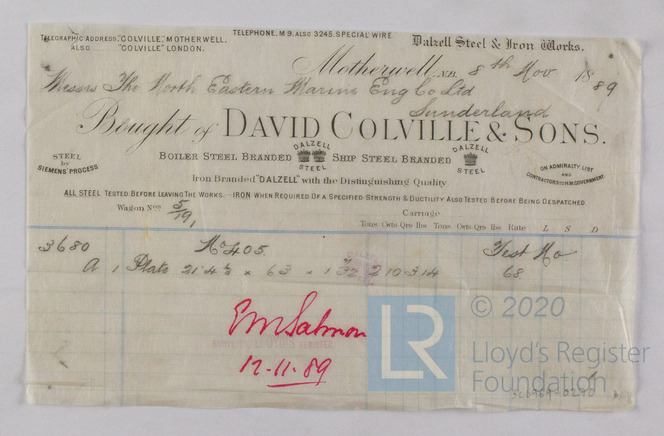 TELEGRAPHIC ADDRESS, "COLVILLE", MOTHERWELL.
ALSO "COLVILLE" LONDON.
TELEPHONE, M 9, ALSO 3245, SPECIAL WIRE
Dalzell Steel & Iron Works.
Motherwell, N.B. 8th Nov 1889
Messrs The North Eastern Marine Eng Co Ltd
Sunderland
Bought of DAVID COLVILLE & SONS.
STEEL by SIEMENS' PROCESS
BOILER STEEL BRANDED DALZELL STEEL SHIP STEEL BRANDED DALZELL STEEL
ON ADMIRALTY LIST AND CONTRACTORS TO H.M. GOVERNMENT.
Iron Branded "DALZELL" with the Distinguishing Quality
ALL STEEL TESTED BEFORE LEAVING THE WORKS.—IRON WHEN REQUIRED OF A SPECIFIED STRENGTH & DUCTILITY ALSO TESTED BEFORE BEING DESPATCHED
Wagon Nos 5/19,
Carriage
Tons Cwts Qrs lbs Tons Cwts Qrs lbs Rate L S D
3680 No 405. Test No
A 1 Plate 21 4 x 63 x 1 2 10 3 14 68
EM Salmon
12-11-89
LR
© 2020
Lloyd's Register
Foundation